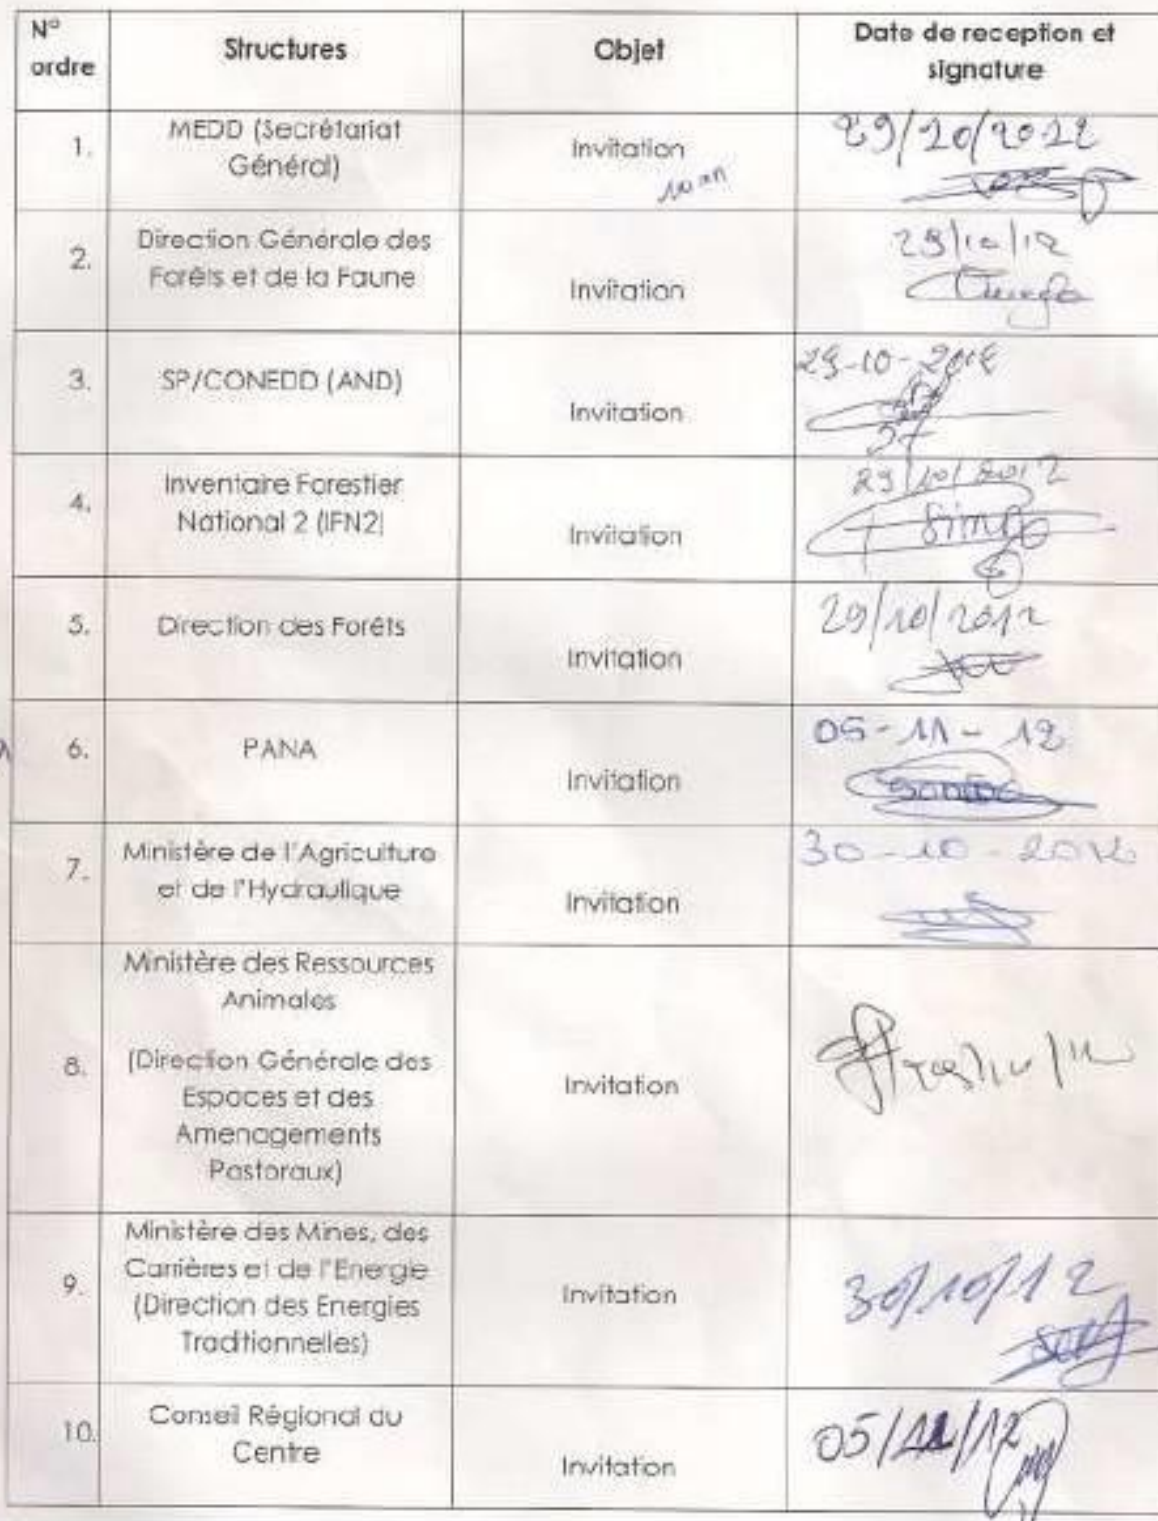 N° ordre
Structures
Objet
Date de reception et signature
1.
MEDD (Secrétariat
Général)
Invitation
29/10/2012
2.
Direction Générale des
Forêts et de la Faune
Invitation
29/10/12
3.
SP/CONEDD (AND)
Invitation
29-10-2012
4.
Inventaire Forestier
National 2 (IFN2)
Invitation
29/10/2012
5.
Direction des Forêts
Invitation
29/10/2012
6.
PANA
Invitation
05-11-12
7.
Ministère de l'Agriculture
et de l'Hydraulique
Invitation
30-10-2012
8.
Ministère des Ressources
Animales
(Direction Générale des
Espaces et des
Amenagements
Pastoraux)
Invitation
9.
Ministère des Mines, des
Carrières et de l'Energie
(Direction des Energies
Traditionnelles)
Invitation
30/10/12
10.
Conseil Régional du
Centre
Invitation
05/11/12